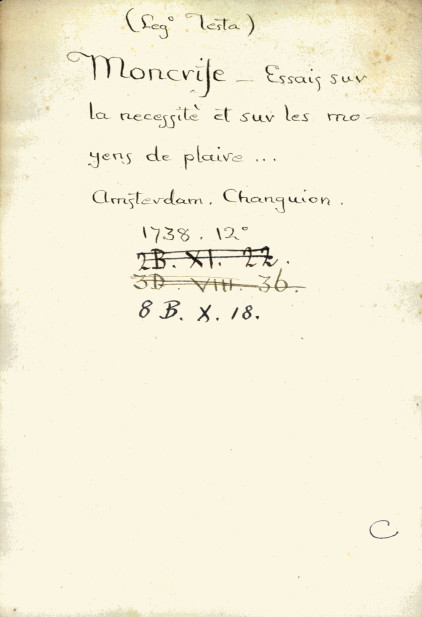 (Leg° Testa)
Moncrife — Essais sur
la necessitè et sur les mo-
yens de plaire ...
Amsterdam. Changuion.
1738. 12°
2B. XI. 22.
3D. VIII. 36.
8 B. X. 18.
C